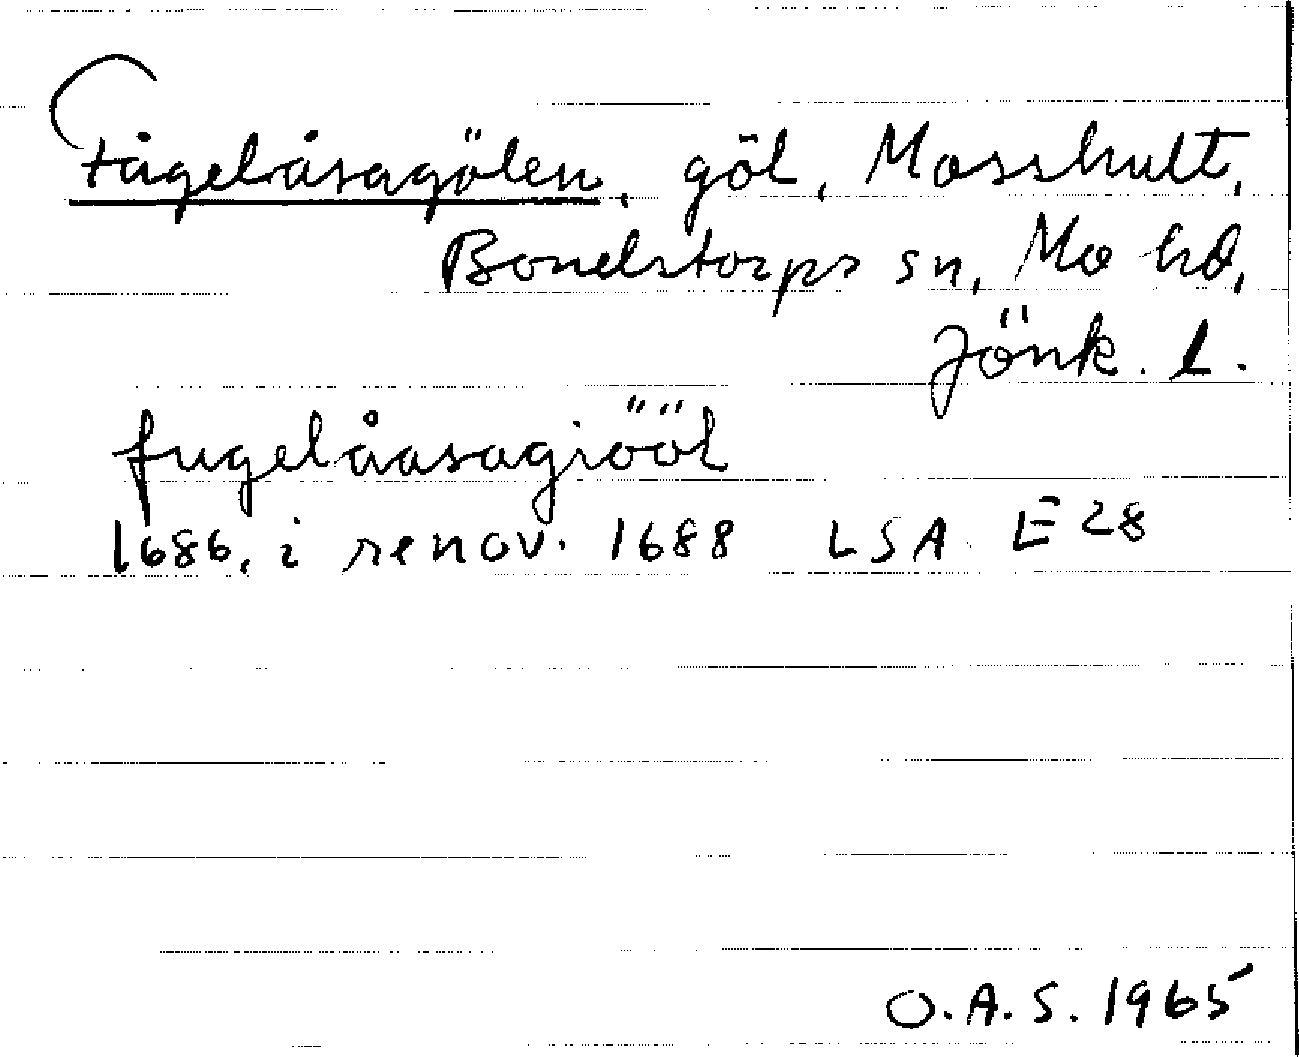 Fågelåsagölen, göl, Mosshult,
Bondstorps sn, Mo hd,
Jönk. l.
fugelåasagiööl
1686, i renov. 1688 LSA E 28
O.A.S. 1965